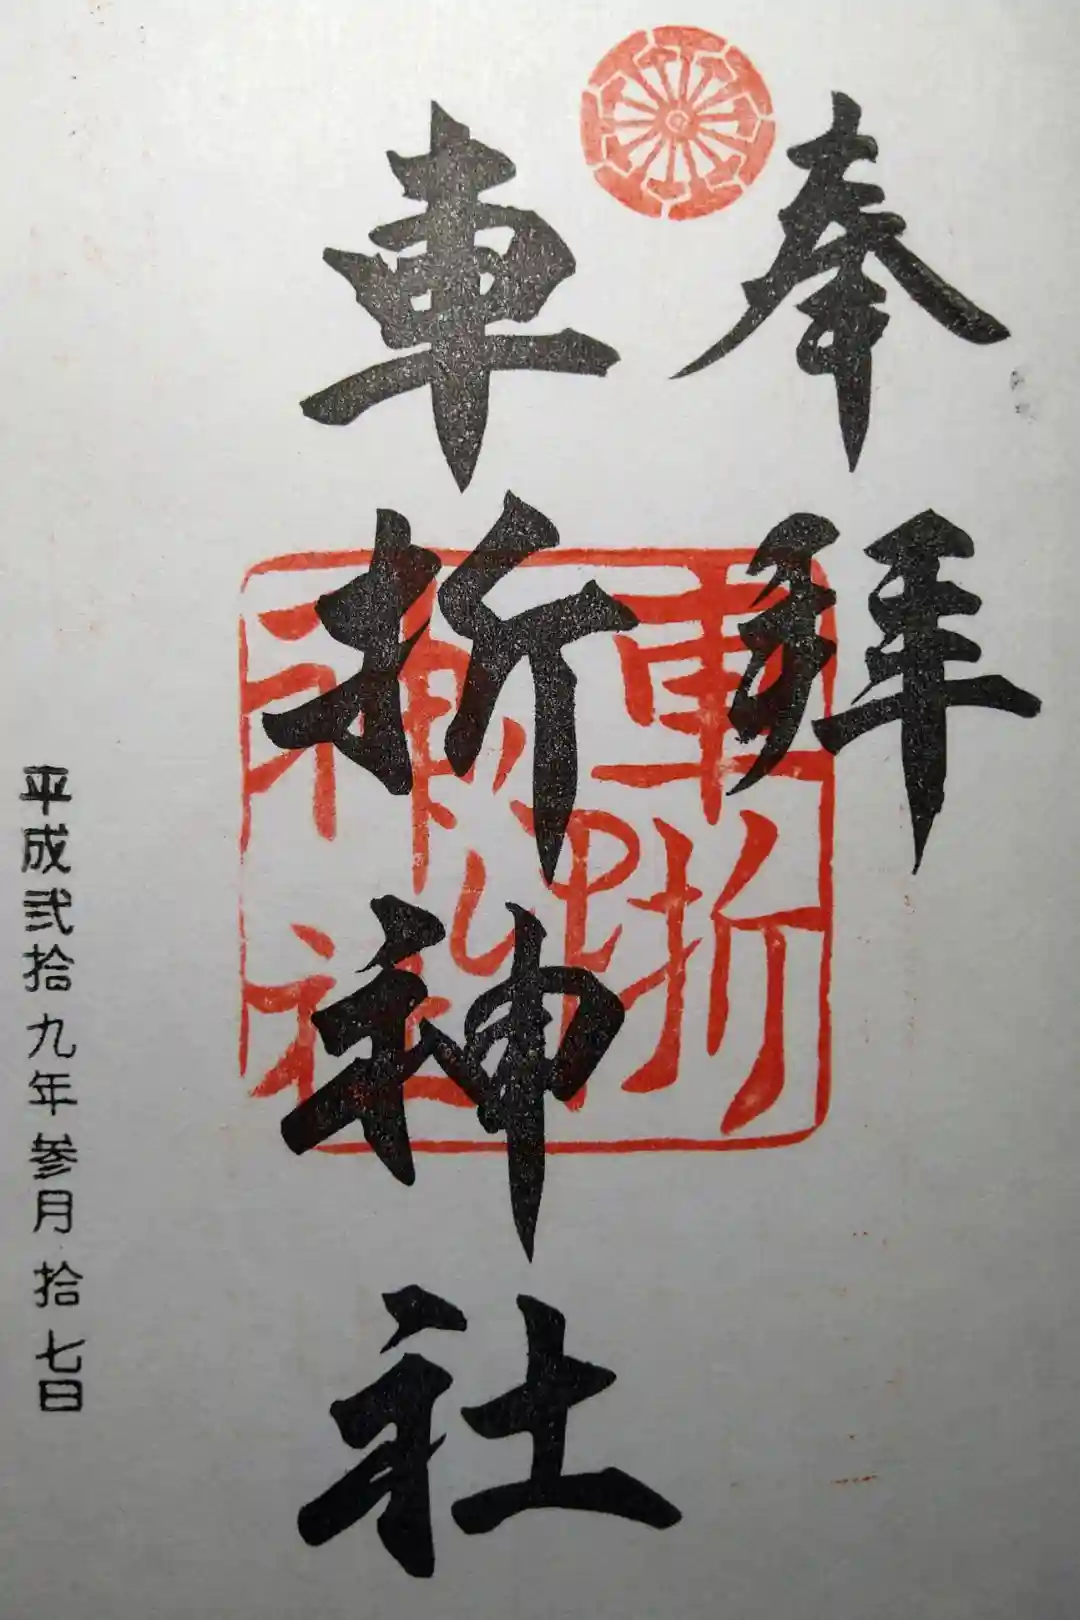 奉拝
車折神社
車折
神社
平成弐拾九年参月拾七日